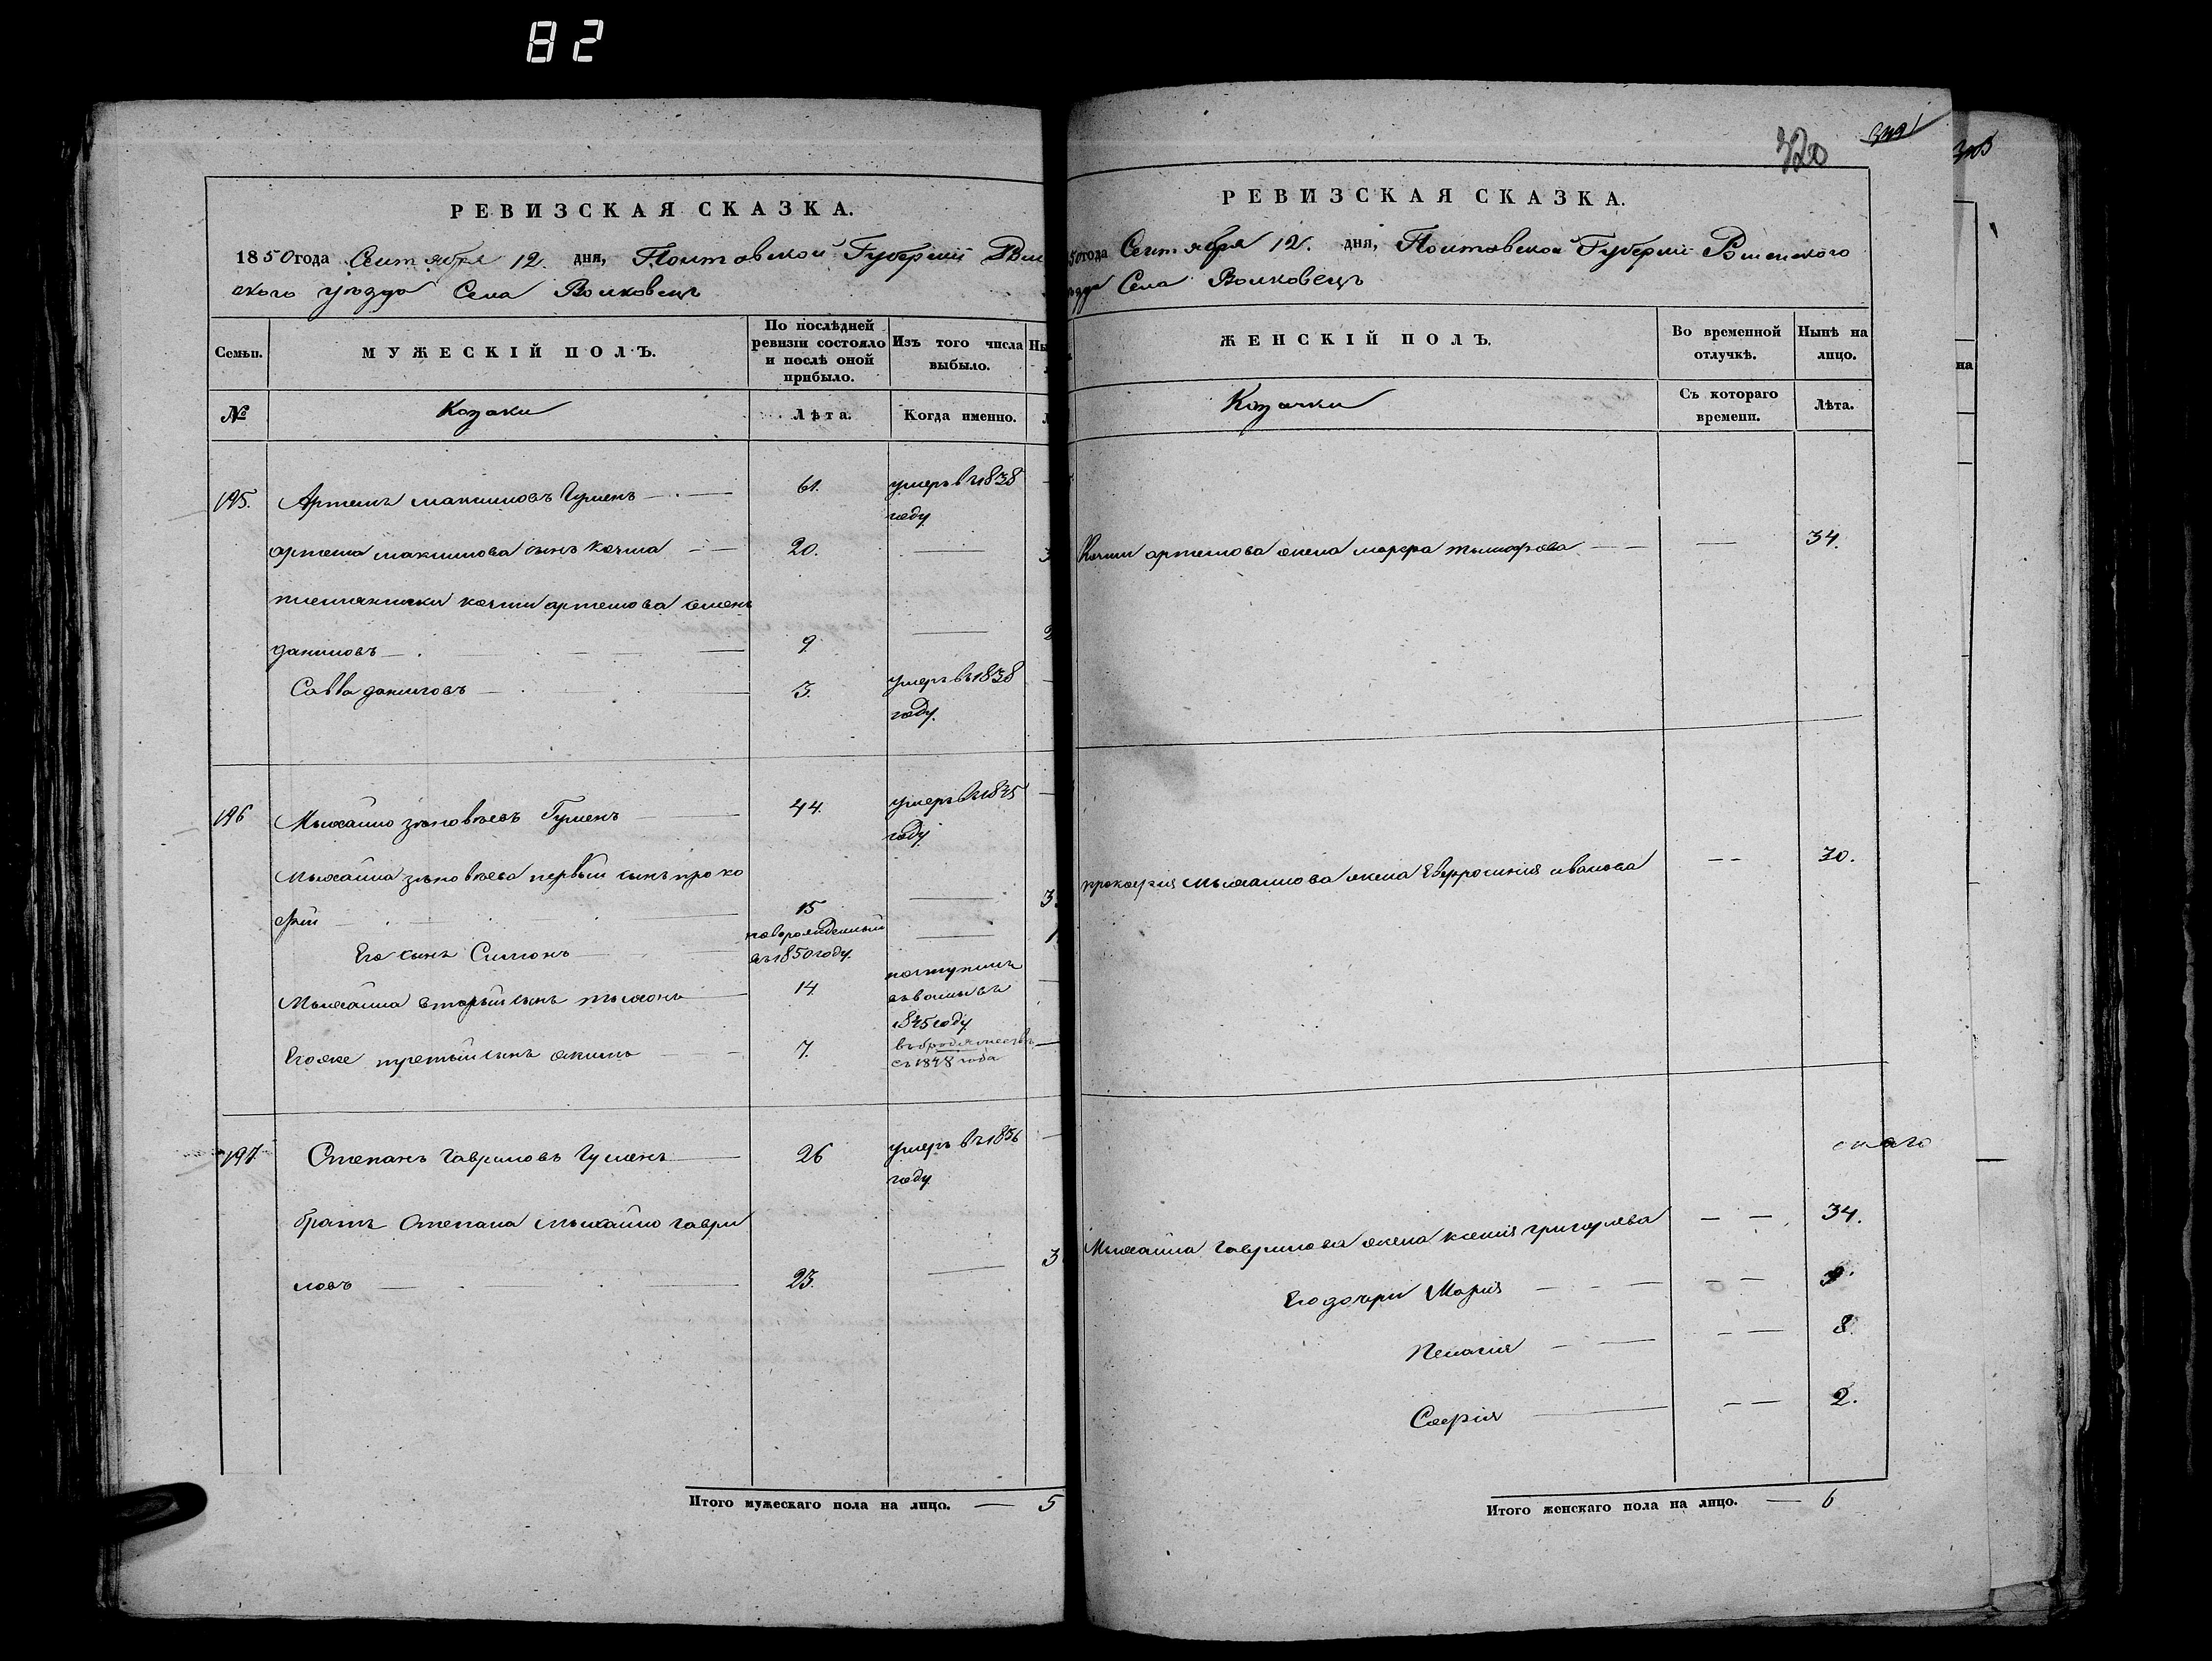 82
РЕВИЗСКАЯ СКАЗКА.
1850 года Сентября 12. дня, Полтавской Губерніи
ского уезда Села Волковецъ
Семьи.
МУЖЕСКІЙ ПОЛЪ.
По послѣдней ревизіи состояло и послѣ оной прибыло.
Изъ того числа выбыло.
№
Козаки
Лѣта.
Когда именно.
195. Артемъ максимовъ Гуменъ 61. умеръ въ 1838
году
артема максимова сынъ Кочма 20.
племянники кочми артемова семенъ
даниловъ 9.
Савва даниловъ 3. умеръ въ 1838
году.
196 Михайло зѣновѣевъ Гуменъ 44. умеръ въ 1845
году
Михайла зѣновѣева первый сынъ проко
фій 15
Его сынъ Симонъ новорожденный
въ 1850 году.
Михайла вторый сынъ тихонъ 14. поступилъ
1845 году
Егоже третый сынъ акимъ 7. въ бродяжествѣ
съ 1848 года
197 Степанъ Гавриловъ Гуменъ 26 умеръ въ 1836
году
братъ Степана Михайло гаври
ловъ 23.
Итого мужескаго пола на лицо. — 5
320
РЕВИЗСКАЯ СКАЗКА.
50 года Сентября 12. дня, Полтавской Губерніи Роменского
Села Волковецъ
ЖЕНСКІЙ ПОЛЪ.
Во временной отлучкѣ.
Нынѣ на лицо.
Козачки
Съ котораго времени.
Лѣта.
Кочми артемова жена марфа тимофѣева 34.
прокофія Михайлова жена Евфросинія иванова 30.
Михайла Гаврилова жена ксенія григорьева 34.
Его дочери Марія 9.
Пелагія 8.
Софія 2.
Итого женскаго пола на лицо. — 6
на